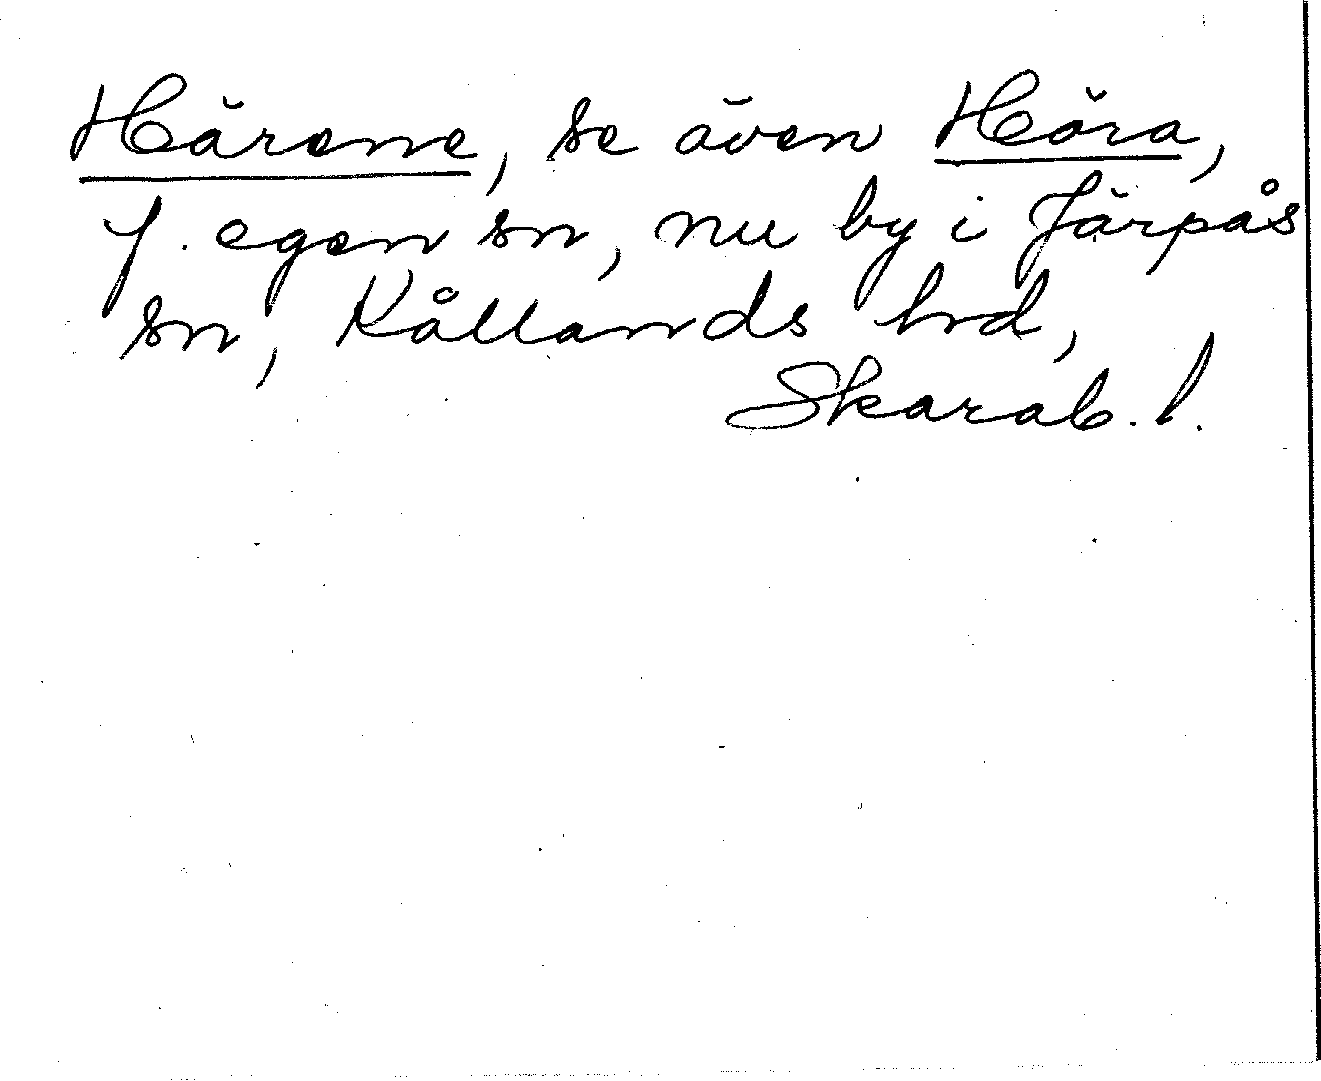 Härene, se även Höra,
f. egen sn, nu by i Järpås
sn, Kållands hrd,
Skarab. l.